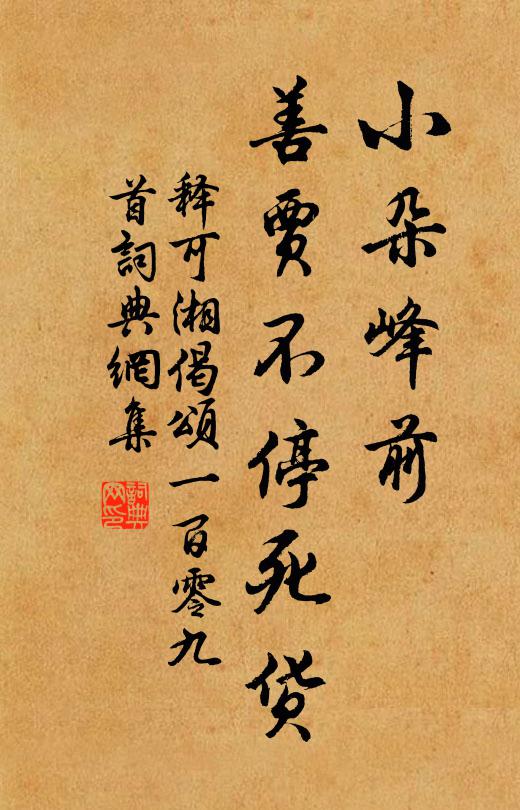 小朵峰前
善贾不停死货
释可湘偈颂一百零九
首詞典網集
詞典
网印